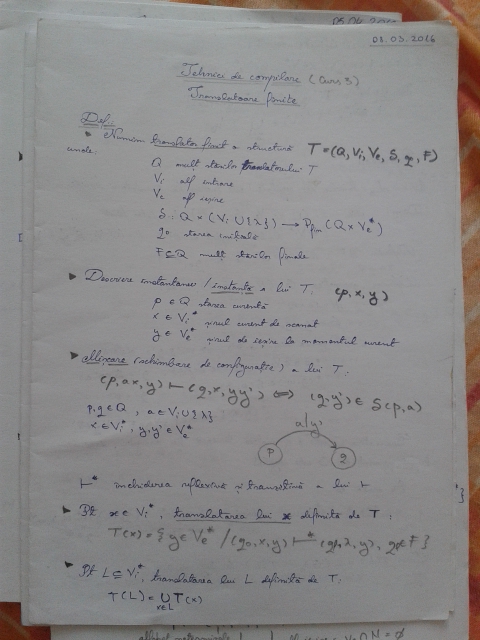 05.04.20
08.03.2016
Tehnici de compilare (Curs 3)
Translatoare finite
Def:
Numim translator finit o structură T = (Q, Vi, Ve, δ, q0, F)
unde:
Q mulț stărilor translatorului T
Vi alf intrare
Ve alf ieșire
δ : Q × (Vi ∪ {λ}) → Pfin (Q × Ve*)
q0 starea inițială
F ⊆ Q mulț stărilor finale
Descriere instantanee / instanță a lui T: (p, x, y)
p ∈ Q starea curentă
x ∈ Vi* șirul curent de scanat
y ∈ Ve* șirul de ieșire la momentul curent
(schimbare de configurație) a lui T:
(p, ax, y) ⊢ (q, x, yy') ⇔ (q, y') ∈ δ(p, a)
p, q ∈ Q, a ∈ Vi ∪ {λ}
x ∈ Vi*, y, y' ∈ Ve*
a/y'
p q
⊢* închiderea reflexivă și tranzitivă a lui ⊢
Pt x ∈ Vi*, translatarea lui x definită de T:
T(x) = {y ∈ Ve* / (q0, x, λ) ⊢* (q, λ, y), q ∈ F}
Pt L ⊆ Vi*, translatarea lui L definită de T:
T(L) = ∪ T(x)
x∈L